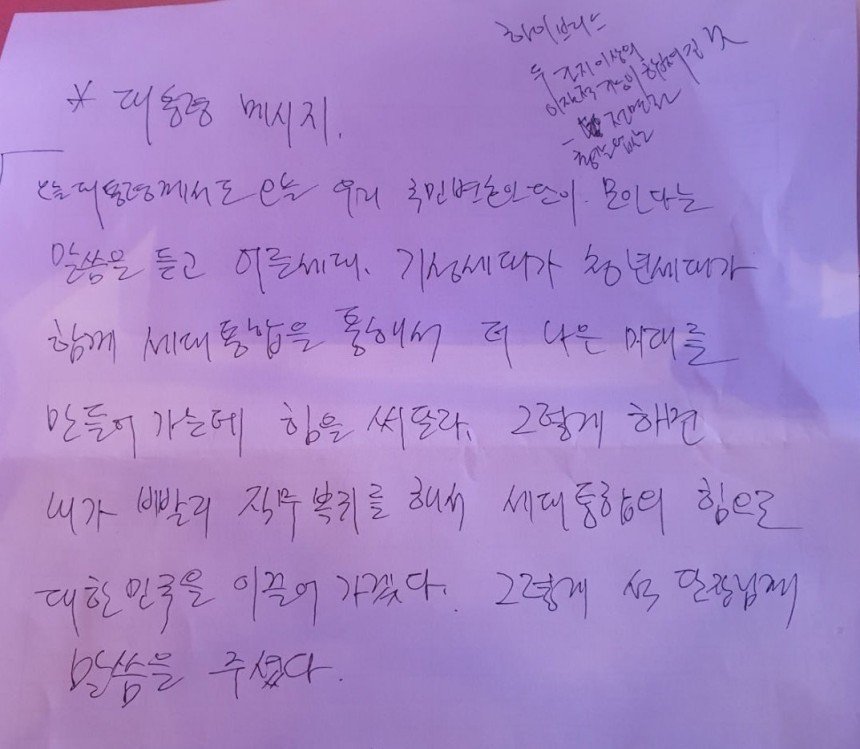 하이브리스
두 가지 이상의
* 대통령 메시지.
오늘 대통령께서도 오늘 우리 국민변호인단이 모인다는
말씀을 듣고 어른세대, 기성세대가 청년세대가
함께 세대통합을 통해서 더 나은 미래를
만들어 가는데 힘을 써달라. 그렇게 하면
내가 빨리 직무복귀를 해서 세대통합의 힘으로
대한민국을 이끌어 가겠다. 그렇게 석 단장님께
말씀을 주셨다.